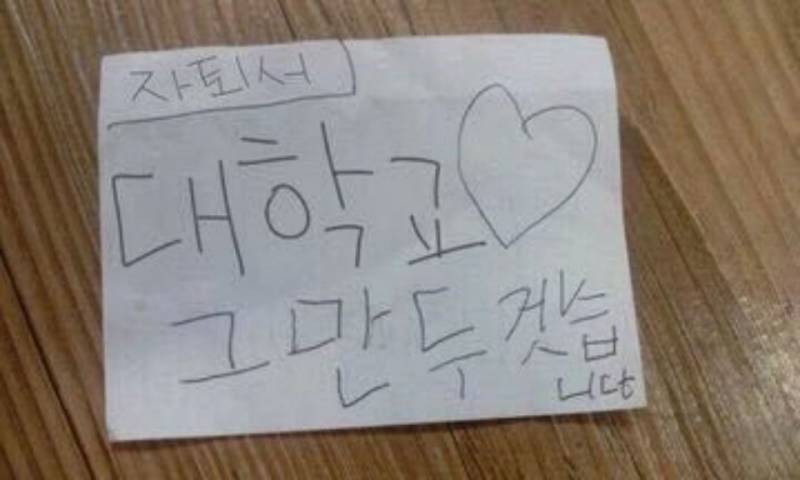 자퇴서
대학교♡
그만두겟습
니다